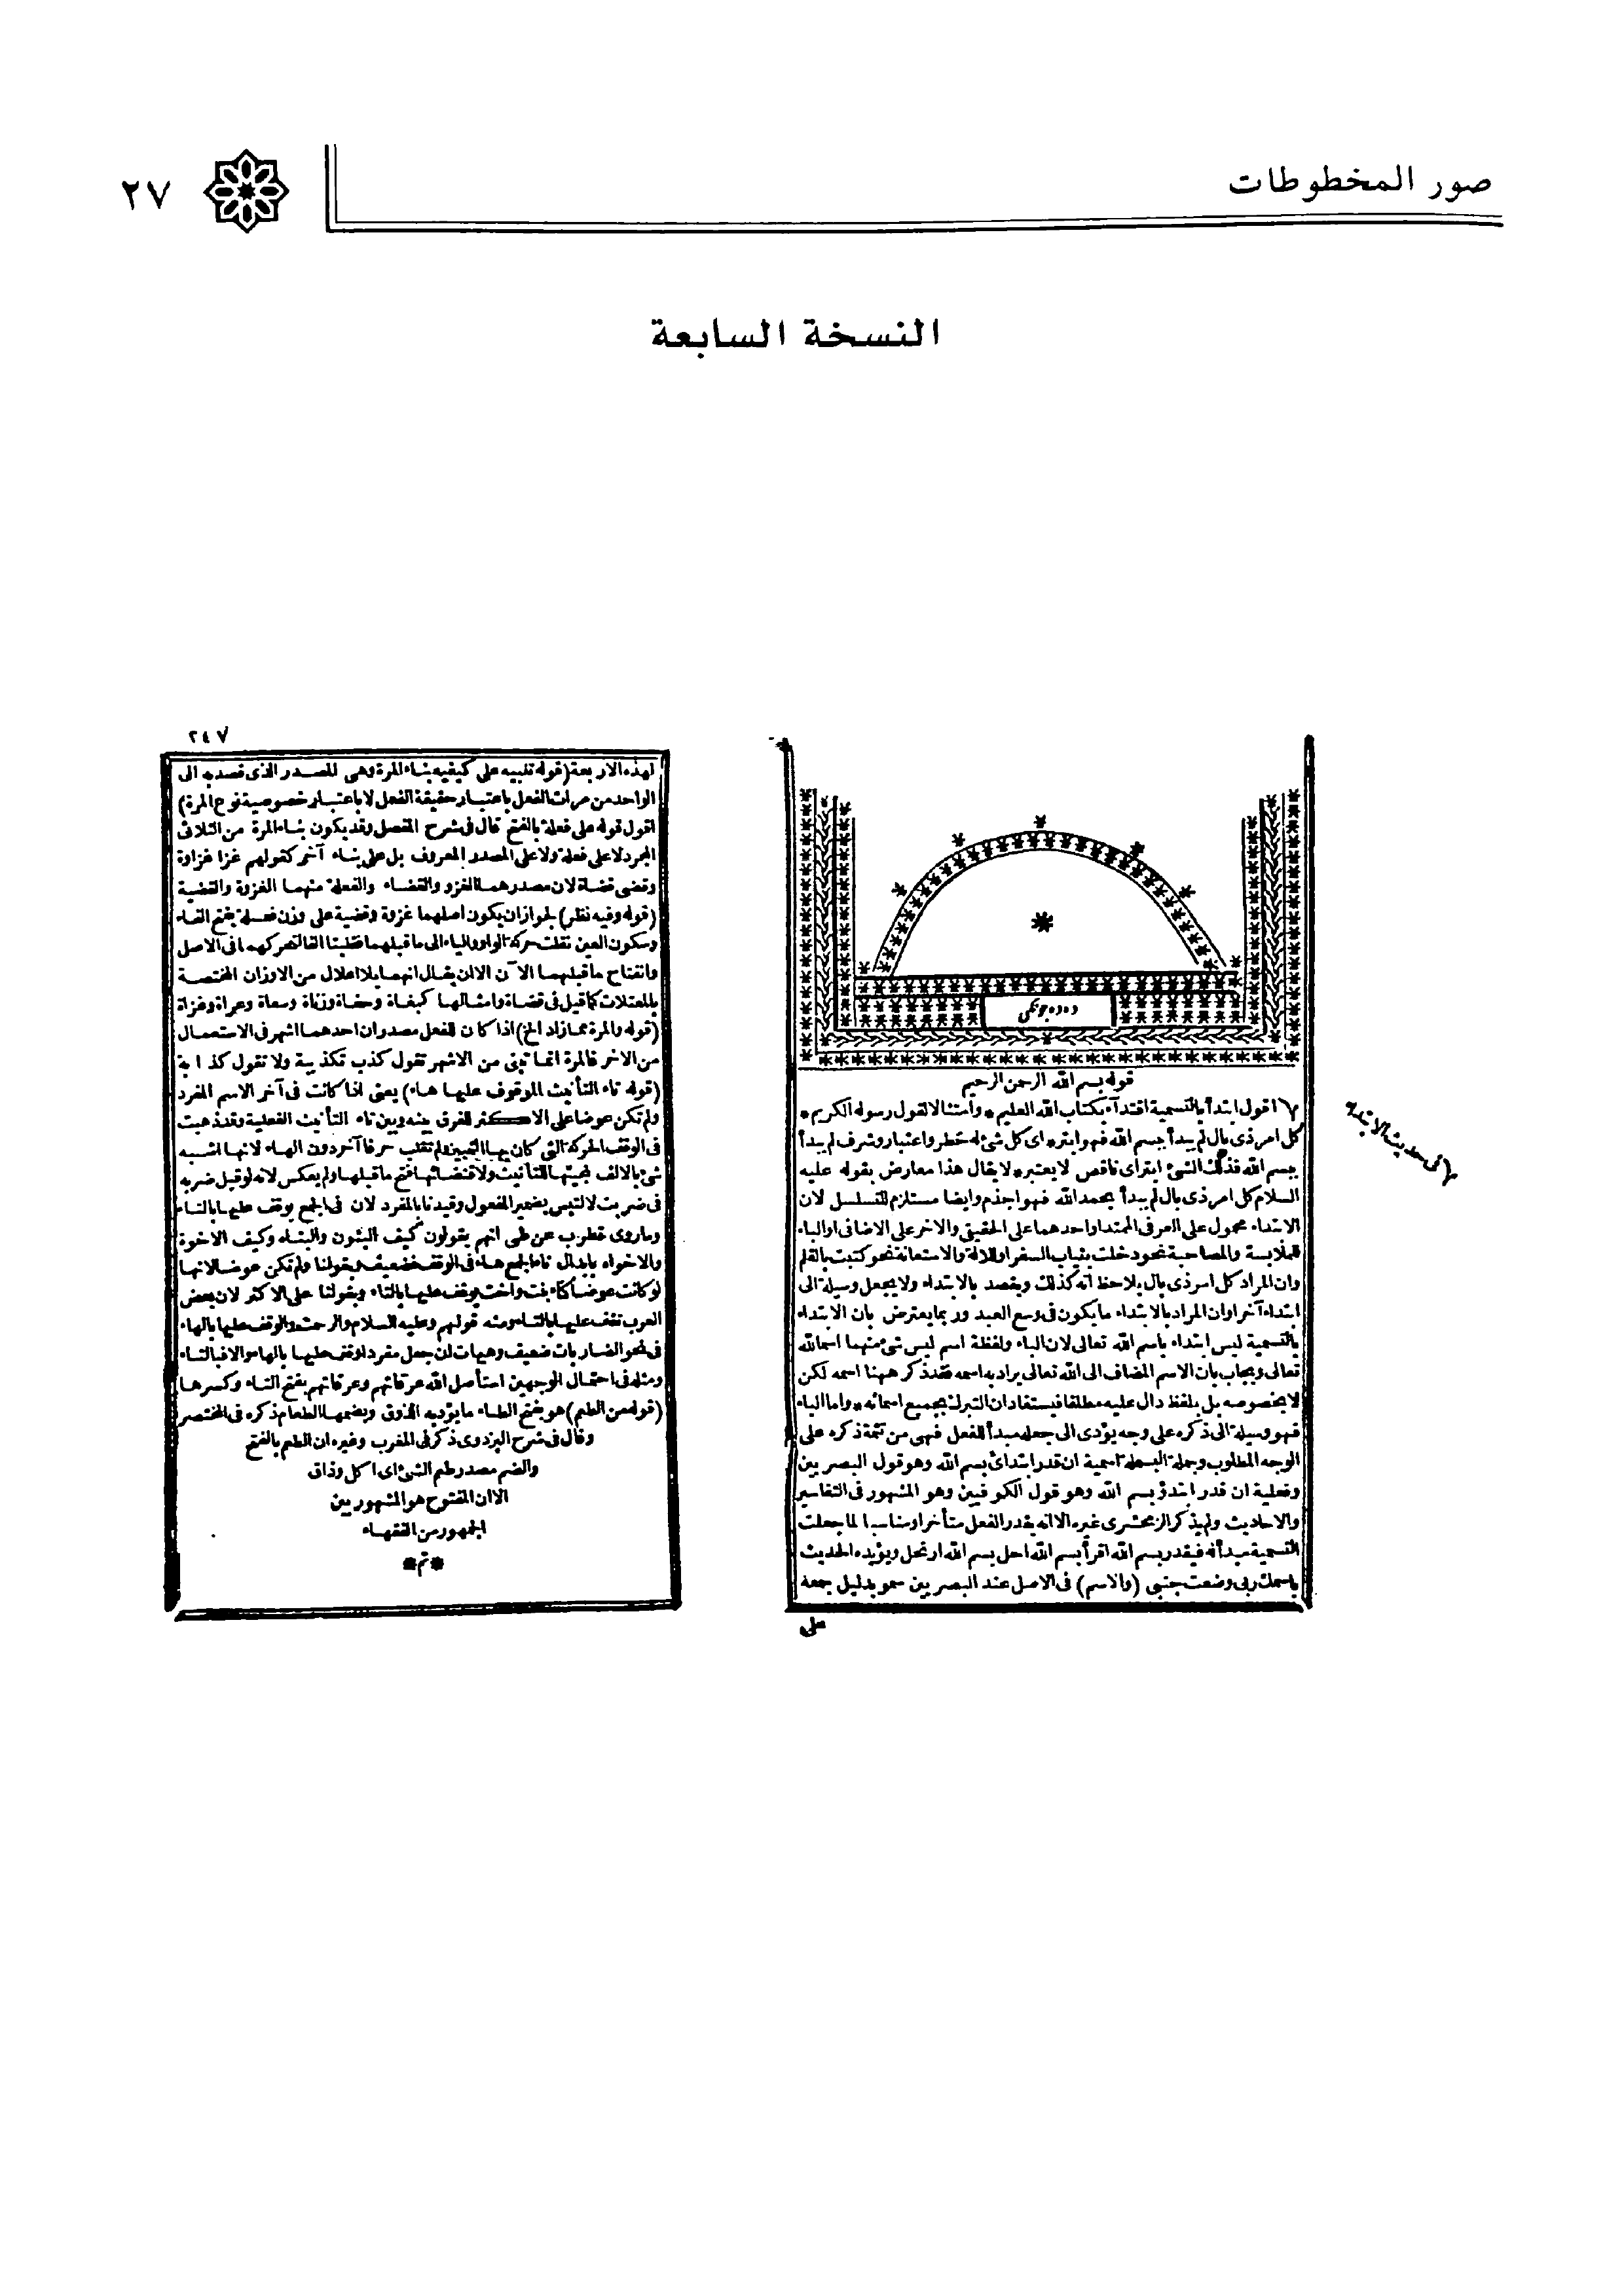 صور المخطوطات
٢٧
النسخة السابعة
دده جونكى
قوله بسم الله الرحمن الرحيم
اقول ابتدأ بالتسمية اقتدآء بكتاب الله العليم * وامتثالا لقول رسوله الكريم *
كل امر ذى بال لم يبدأ ببسم الله فهو ابتر * اى كل شئ له خطر واعتبار وشرف لم يبدأ
ببسم الله فذلك الشئ ابتر اى ناقص لا يعتبر * لا يقال هذا معارض بقوله عليه
السلام كل امر ذى بال لم يبدأ بحمد الله فهو اجذم وايضا مستلزم للتسلسل لان
الابتداء محمول على العرفى الممتد او احدهما على الحقيقى والاخر على الاضافى او الباء
للملابسة والمصاحبة نحو دخلت بثياب السفر او للالة والاستعانة نحو كتبت بالقلم
وان المراد كل امر ذى بال يلاحظ انه كذلك ويقصد بالابتداء ولا يجعل وسيلة الى
ابتداء آخر او ان المراد بالابتداء ما يكون فى وسع العبد وربما يعترض بان الابتداء
بالتسمية ليس ابتداء باسم الله تعالى لان الباء ولفظة اسم ليس شئ منهما اسما لله
تعالى ويجاب بان الاسم المضاف الى الله تعالى يراد به اسمه فقد ذكر ههنا اسمه لكن
لا بخصوصه بل بلفظ دال عليه مطلقا فيستفاد ان التبرك بجميع اسمائه * واما الباء
فهو وسيلة الى ذكره على وجه يؤدى الى جعله مبدأ للفعل فهى من تتمة ذكره على
الوجه المطلوب وجملة البسملة اسمية ان قدر ابتدائ بسم الله وهو قول البصريين
وفعلية ان قدر ابتدؤ بسم الله وهو قول الكوفيين وهو المشهور فى التفاسير
والاحاديث ولم يذكر الزمخشرى غيره الا انه يقدر الفعل متأخرا ومناسبا لما جعلت
التسمية مبدأ له فيقدر بسم الله اقرأ بسم الله احل بسم الله ارتحل ويؤيده الحديث
باسمك ربى وضعت جنبى (والاسم) فى الاصل عند البصريين سمو بدليل جمعه
على
فى حديث الابتداء
٢٤٧
لهذه الاربعة (قوله تنبيه على كيفيه بناء المرة وهى للمصدر الذى قصد به الى
الواحد من مرات الفعل باعتبار حقيقة الفعل لا باعتبار خصوصية نوع المرة)
اقول قوله على فعلة بالفتح قال فى شرح المفصل وقد يكون بناء المرة من الثلاثى
المجرد لا على فعلة ولا على المصدر المعروف بل على بناء آخر كقولهم غزا غزاوة
وقضى قضاة لان مصدرهما الغزو والقضاء والفعلة منهما الغزوة والقضية
(قوله وفيه نظر) لجواز ان يكون اصلهما غزوة وقضية على وزن فعلة بفتح الفاء
وسكون العين نقلت حركة الواو والياء الى ما قبلهما فقلبتا الفا لتحركهما فى الاصل
وانفتاح ما قبلهما الآن الا ان يقال انهما بلا اعلال من الاوزان المختصة
بالمعتلات كما قيل فى قضاة وامثالها كبغاة وحفاة وزناة وسعاة وعراة وغزاة
(قوله والمرة مما زاد الخ) اذا كان للفعل مصدران احدهما اشهر فى الاستعمال
من الاخر فالمرة انما تبنى من الاشهر تقول كذب تكذيبة ولا تقول كذابة
(قوله تاء التأنيث الموقوف عليها هاء) يعنى اذا كانت فى آخر الاسم المفرد
ولم تكن عوضا على الاكثر للفرق بينه وبين تاء التأنيث الفعلية وقد ذهبت
فى الوقف الحركة التى كان بها التمييز ولم تقلب حرفا آخر دون الهاء لانها اشبه
شئ بالالف لمجيئها للتأنيث ولاقتضائها فتح ما قبلها ولم يعكس لانه لو قيل ضربه
فى ضربت لالتبس بضمير المفعول وقيدنا بالمفرد لان فى الجمع يوقف عليها بالتاء
وما روى قطرب عن طى انهم يقولون كيف البنون والبناه وكيف الاخوة
والاخواه بابدال تاء الجمع هاء فى الوقف فضعيف وبقولنا ولم تكن عوضا لانها
لو كانت عوضا كتاء بنت واخت يوقف عليها بالتاء وبقولنا على الاكثر لان بعض
العرب تقف عليها بالتاء ومنه قولهم وعليه السلام والرحمت والوقف عليها بالهاء
فى نحو الضاربات ضعيف وهيهات ان جعل مفردا وقف عليها بالهاء والا فبالتاء
ومثله فى احتمال الوجهين استأصل الله عرقاتهم وعرقاتهم بفتح التاء وكسرها
(قوله من الطعم) هو بفتح الطاء ما يؤديه الذوق وبضمها الطعام ذكره فى المختصر
وقال فى شرح البزدوى ذكر فى المغرب وغيره ان الطعم بالفتح
والضم مصدر طعم الشئ اى اكل وذاق
الا ان المفتوح هو المشهور بين
الجمهور من الفقهاء
* تم *